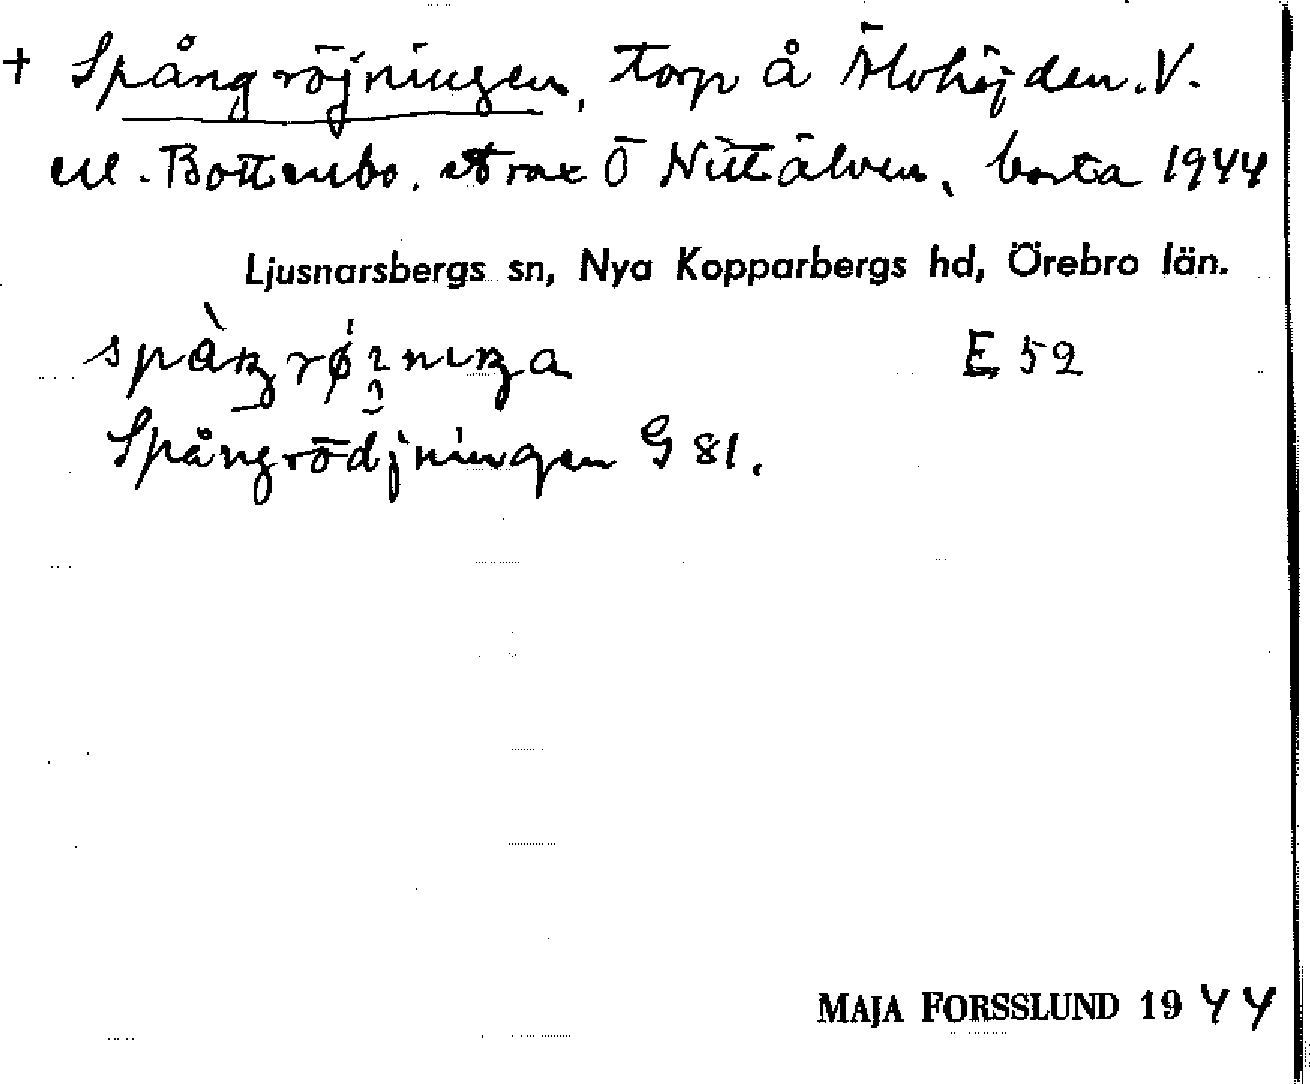 + Spångröjningen, torp å Älvhöjden. V.
ell. Bottenbo. strax Ö Nittälven, borta 1944
Ljusnarsbergs sn, Nya Kopparbergs hd, Örebro län.
E 52
Spångrödjningen G 81.
MAJA FORSSLUND 1944